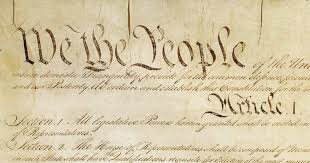 We the People of the Unit
insure domestic Tranquility, provide for the common defence, promote
and our Posterity, do ordain and establish this Constitution for the
Article. I.
Section. 1. All legislative Powers herein granted shall be vested in
of Representatives.
Section. 2. The House of Representatives shall be composed of Mem
in each State shall have Qualifications requisite for Electors